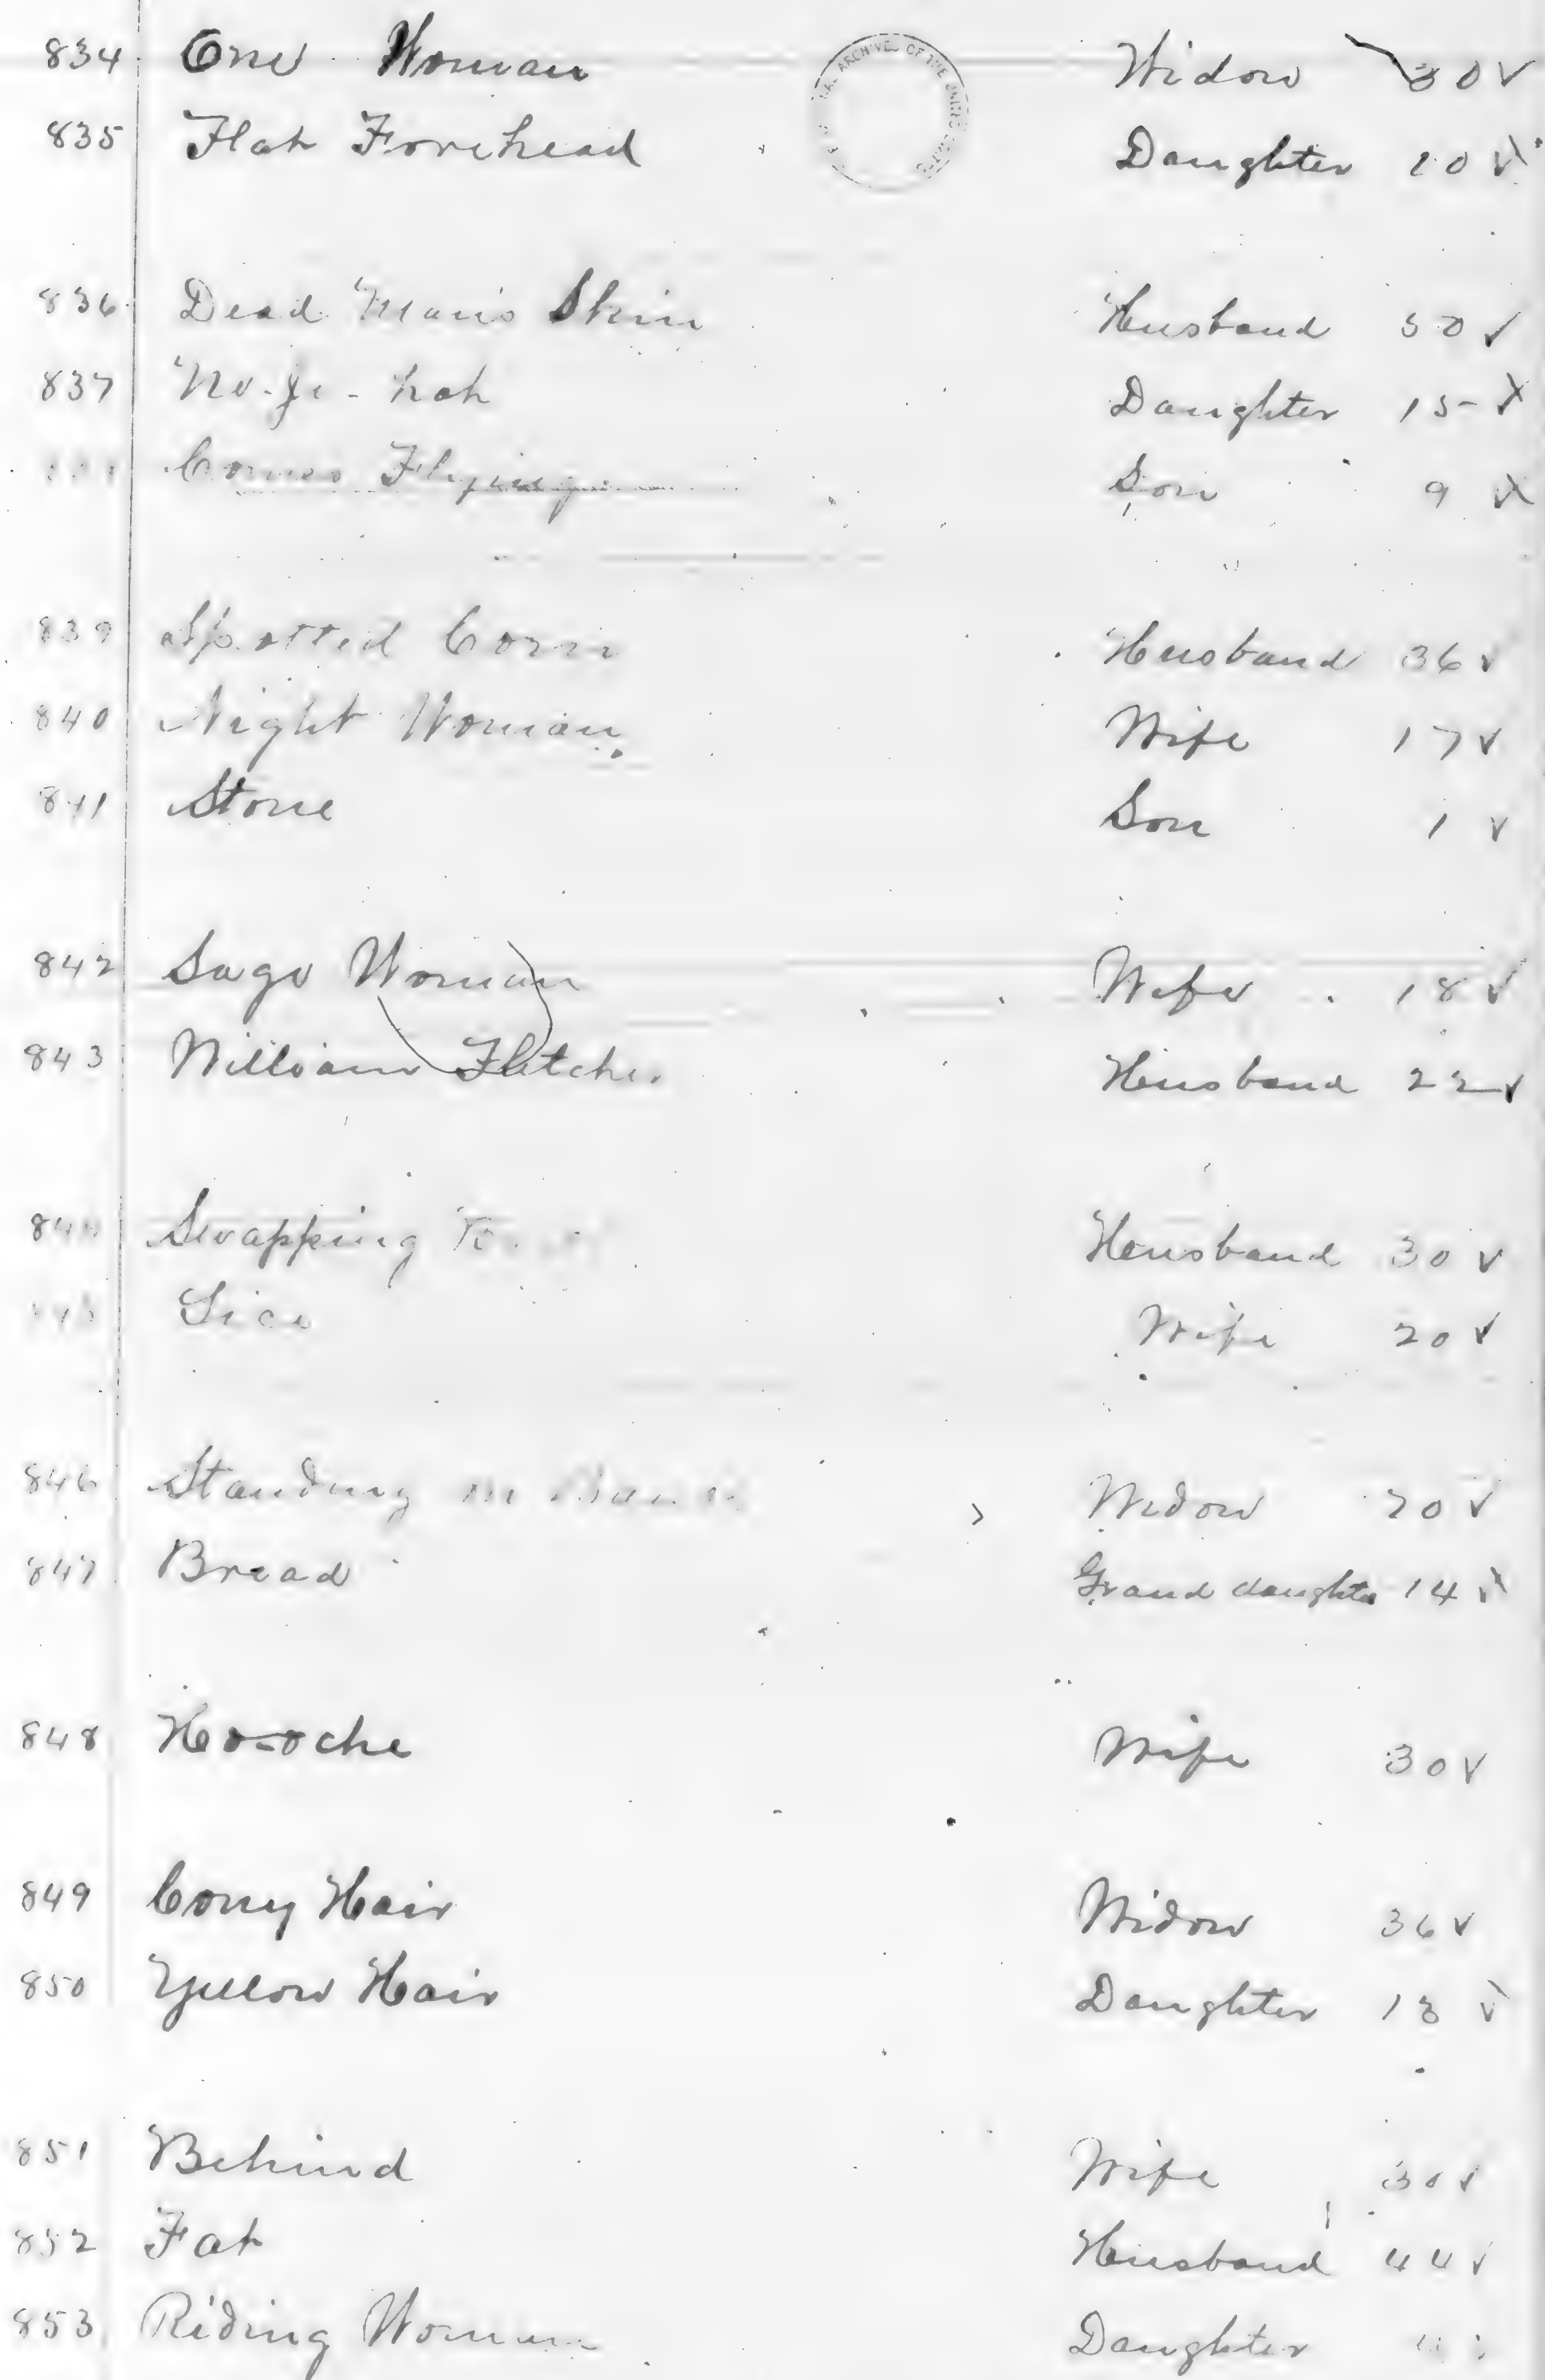 834 One Woman Widow 30 ✓
835 Flat Forehead Daughter 10
836 Dead Man's Skin Husband 50 ✓
837 Daughter 15
Comes Flying Son 9
839 Spotted Corn Husband 36 ✓
840 Night Woman Wife 17 ✓
841 Stone Son 1 ✓
842 Sage Woman Wife 18 ✓
843 William Fletcher Husband 22 ✓
844 Swapping Husband 30 ✓
845 Lice Wife 20 ✓
846 Standing in Widow 70 ✓
847 Bread Grand daughter 14
848 Ho-oche Wife 30 ✓
849 Corry Hair Widow 36 ✓
850 Yellow Hair Daughter 13
851 Behind Wife 30 ✓
852 Fat Husband 44 ✓
853 Riding Woman Daughter